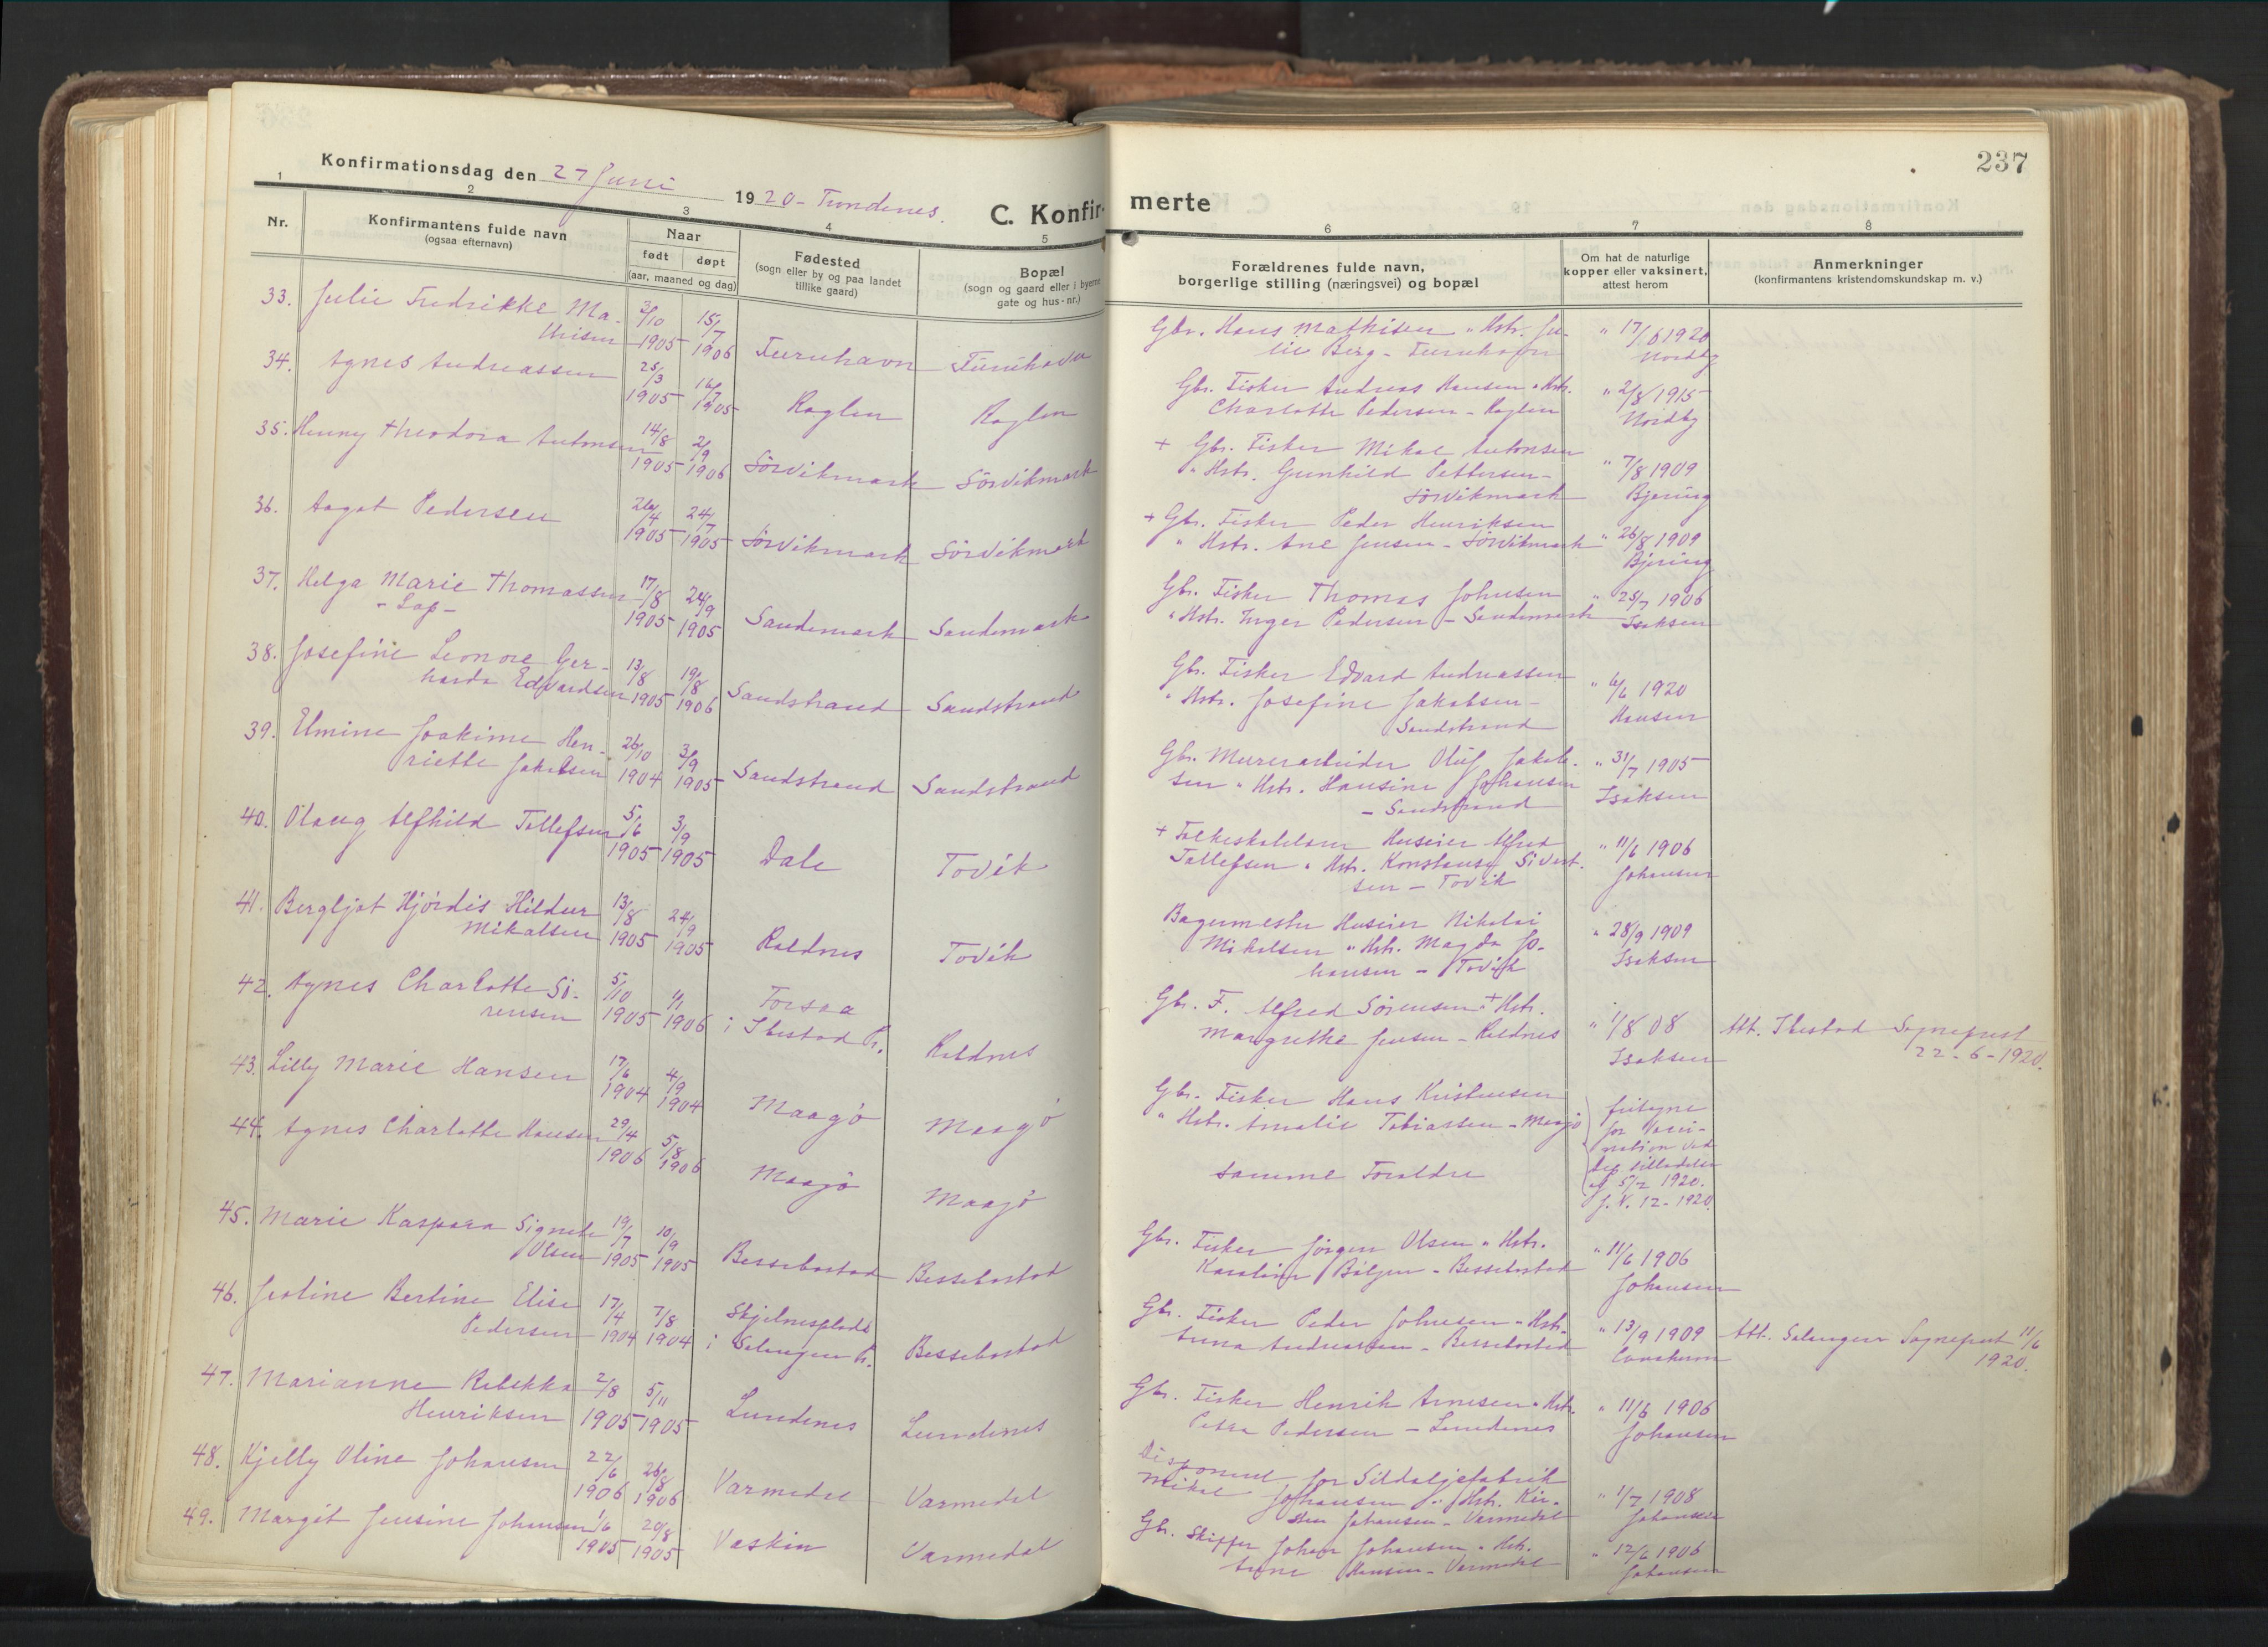 Konfirmationsdag den 27 Juni 1920 - Trondenes.
C. Konfirmerte
237
1 2 3 4 5 6 7 8
Nr.
Konfirmantens fulde navn
(ogsaa efternavn)
Naar
født døpt
(aar, maaned og dag)
Fødested
(sogn eller by og paa landet
tillike gaard)
Bopæl
(sogn og gaard eller i byerne
gate og hus-nr.)
Forældrenes fulde navn,
borgerlige stilling (næringsvei) og bopæl
Om hat de naturlige
kopper eller vaksinert,
attest herom
Anmerkninger
(konfirmantens kristendomskundskap m. v.)
33. Julie Fredrikke Ma- 15/7 Gbr. Hans Mathisen " Hstr. Ju- " 17/6 1920
thisen 1905 1906 lie Berg - Nordby
34. Agnes Andreassen 25/3 1905 16/7 1905 Gbr. Fisker Andreas Hansen " Hstr. " 2/8 1915
Charlotte Pedersen - Nordby
35. Henny Theodora Antonsen 14/8 1905 2/9 1906 Sörvikmark Sörvikmark + Gbr. Fisker Mikal Antonsen
" Hstr. Gunhild Pettersen - " 7/8 1909
Sörvikmark Bjering
36. Aagot Pedersen 26/4 1905 24/7 1905 Sörvikmark Sörvikmark + Gbr. Fisker Peder Henriksen
" Hstr. Ane Jensen - Sörvikmark " 26/8 1909
Bjering
37. Helga Marie Thomassen 17/8 1905 24/9 1905 Sandemark Sandemark Gbr. Fisker Thomas Johnsen " 25/7 1906
- Lap - " Hstr. Inger Pedersen - Sandemark Isaksen
38. Josefine Leonore Ger- 13/8 19/8 Gbr. Fisker Edvard Andreassen
harda Edvardsen 1905 1906 Sandstrand Sandstrand " Hstr. Josefine Jakobsen - " 6/6 1920
Sandstrand Hansen
39. Elmine Joakime Hen- 26/10 3/9 Gbr. Murerarbeider Oluf Jakob- " 31/7 1905
riette Jakobsen 1904 1905 Sandstrand Sandstrand sen " Hstr. Hansine Johansen Isaksen
- Sandstrand
40. Olaug Alfhild Tollefsen 5/6 1905 3/9 1905 Dale Tovik + Huseier Alfred " 11/6 1906
Tollefsen " Hstr. Konstanse Sivert- Johansen
sen - Tovik
41. Bergljot Hjördis Hildur 13/8 24/9 Bagermester Huseier Nikolai " 28/9 1909
Mikalsen 1905 1905 Tovik Mikalsen " Hstr. Magda Jo- Isaksen
hansen - Tovik
42. Agnes Charlotte Sö- 5/10 1/1 Torsaa Gbr. F. Alfred Sörensen + Hstr. " 1/8 08 Att. Ibestad Sogneprest
rensen 1905 1906 i Ibestad Pr. Margrethe Jensen - Isaksen 22-6-1920.
43. Lilly Marie Hansen 17/6 1904 4/9 1904 Maagö Maagö Gbr. Fisker Hans Kristensen fritagne
" Hstr. Amalie Tobiassen - Maagö for Vacci-
nation ved
44. Agnes Charlotte Hansen 29/4 1906 5/8 1906 Maagö Maagö samme Foraldre
af 5/2 1920.
J. N. 12-1920.
45. Marie Kaspara Signete 19/7 10/9 Gbr. Fisker Jörgen Olsen " Hstr. " 11/6 1906
Olsen 1905 1905 Bessebostad Bessebostad - Bessebostad Johansen
46. Jentine Bertine Elise 17/4 7/8 Gbr. Fisker Peder Johnsen " Hstr. " 13/9 1909 Att. Salangen Sogneprest 11/6
Pedersen 1904 1904 i Salangen Pr. Bessebostad Anna Andreassen - Bessebostad 1920.
47. Marianne Rebekka 2/8 5/11 Gbr. Fisker Henrik Arnesen " Hstr. " 11/6 1906
Henriksen 1905 1905 Lundenes Lundenes Petra Pedersen - Lundenes Johansen
48. Kjelly Oline Johansen 22/6 1906 26/8 1906 Varmedal Varmedal Disponent for Sildoljefabrik
Mikal Johansen " Hstr. Kir- " 1/7 1908
sten Johansen - Varmedal Johansen
49. Margit Jensine Johansen 1/6 1905 20/8 1905 Vaskin Varmedal Gbr. Skipper Johan Johansen " Hstr. " 12/6 1906
Anne Hansen - Varmedal Johansen